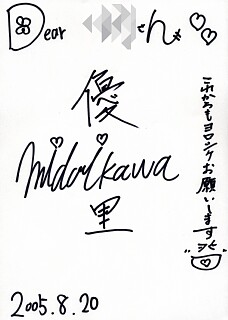 Dear さんへ
優
Midorikawa
里
これからもヨロシクお願いします
2005.8.20